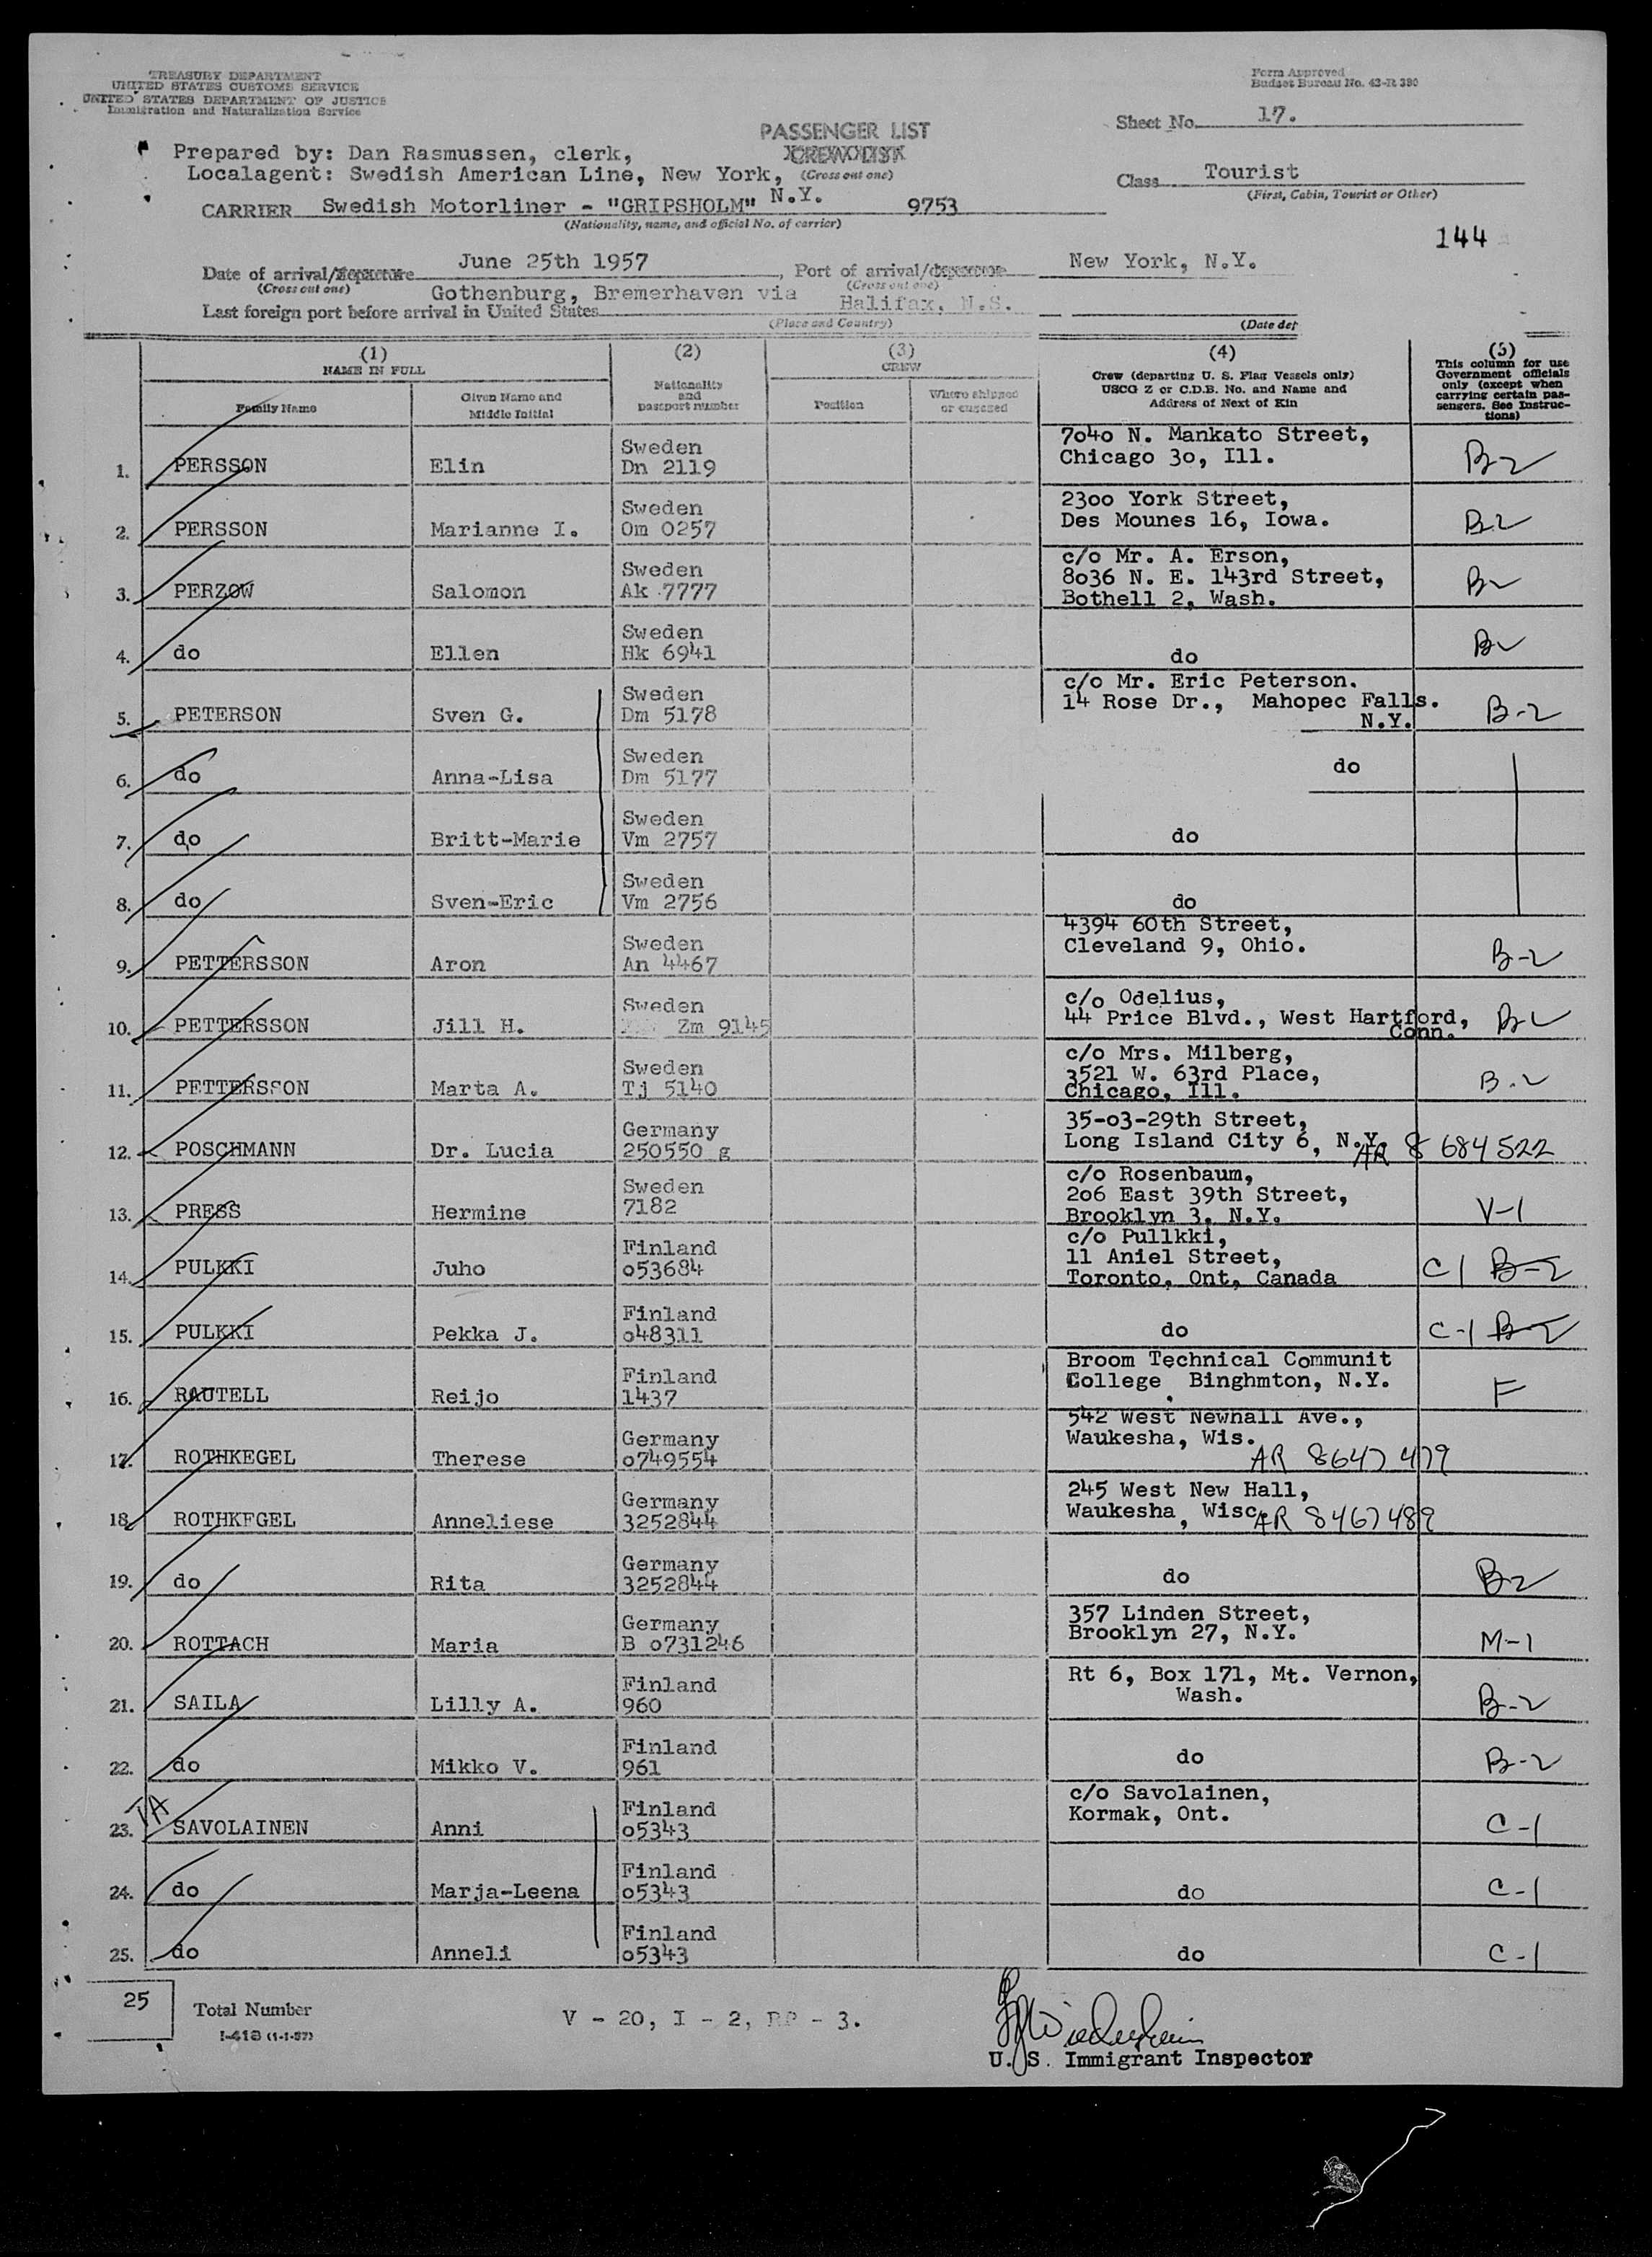 TREASURY DEPARTMENT
UNITED STATES CUSTOMS SERVICE
UNITED STATES DEPARTMENT OF JUSTICE
Immigration and Naturalization Service
Form Approved
Budget Bureau No. 43-R 390
Sheet No. 17.
PASSENGER LIST
CREW LIST
(Cross out one)
Prepared by: Dan Rasmussen, clerk,
Localagent: Swedish American Line, New York, N.Y.
Class Tourist
(First, Cabin, Tourist or Other)
CARRIER Swedish Motorliner - "GRIPSHOLM" 9753
(Nationality, name, and official No. of carrier)
144
Date of arrival/departure June 25th 1957, Port of arrival/departure New York, N.Y.
(Cross out one) (Cross out one)
Last foreign port before arrival in United States Gothenburg, Bremerhaven via Halifax, N.S.
(Place and Country) (Date def
(1) NAME IN FULL
Family Name
Given Name and Middle Initial
(2)
Nationality and passport number
(3) CREW
Position
Where shipped or engaged
(4)
Crew (departing U. S. Flag Vessels only)
USCG Z or C.D.B. No. and Name and
Address of Next of Kin
(5)
This column for use
Government officials
only (except when
carrying certain pas-
sengers. See Instruc-
tions)
1. PERSSON Elin Sweden Dn 2119 7040 N. Mankato Street, Chicago 30, Ill. B-2
2. PERSSON Marianne I. Sweden Om 0257 2300 York Street, Des Mounes 16, Iowa. B-2
3. PERZOW Salomon Sweden Ak 7777 c/o Mr. A. Erson, 8036 N. E. 143rd Street, Bothell 2, Wash. B2
4. do Ellen Sweden Hk 6941 do B2
5. PETERSON Sven G. Sweden Dm 5178 c/o Mr. Eric Peterson. 14 Rose Dr., Mahopec Falls. N.Y. B-2
6. do Anna-Lisa Sweden Dm 5177 do
7. do Britt-Marie Sweden Vm 2757 do
8. do Sven-Eric Sweden Vm 2756 do
9. PETTERSSON Aron Sweden An 4467 4394 60th Street, Cleveland 9, Ohio. B-2
10. PETTERSSON Jill H. Sweden Zm 9145 c/o Odelius, 44 Price Blvd., West Hartford, Conn. B2
11. PETTERSSON Marta A. Sweden Tj 5140 c/o Mrs. Milberg, 3521 W. 63rd Place, Chicago, Ill. B-2
12. POSCHMANN Dr. Lucia Germany 250550 g 35-03-29th Street, Long Island City 6, N.Y. AR 8 684 522
13. PRESS Hermine Sweden 7182 c/o Rosenbaum, 206 East 39th Street, Brooklyn 3, N.Y. V-1
14. PULKKI Juho Finland 053684 c/o Pullkki, 11 Aniel Street, Toronto, Ont, Canada C1 B-2
15. PULKKI Pekka J. Finland 048311 do C-1 B-2
16. RAUTELL Reijo Finland 1437 Broom Technical Communit College Binghmton, N.Y. F
17. ROTHKEGEL Therese Germany 0749554 542 West Newhall Ave., Waukesha, Wis. AR 8647 479
18. ROTHKEGEL Anneliese Germany 3252844 245 West New Hall, Waukesha, Wisc. AR 8467489
19. do Rita Germany 3252844 do B2
20. ROTTACH Maria Germany B 0731246 357 Linden Street, Brooklyn 27, N.Y. M-1
21. SAILA Lilly A. Finland 960 Rt 6, Box 171, Mt. Vernon, Wash. B-2
22. do Mikko V. Finland 961 do B-2
23. SAVOLAINEN Anni Finland 05343 c/o Savolainen, Kormak, Ont. C-1
24. do Marja-Leena Finland 05343 do C-1
25. do Anneli Finland 05343 do C-1
25 Total Number
I-418 (1-1-57)
V - 20, I - 2, RP - 3.
U. S. Immigrant Inspector